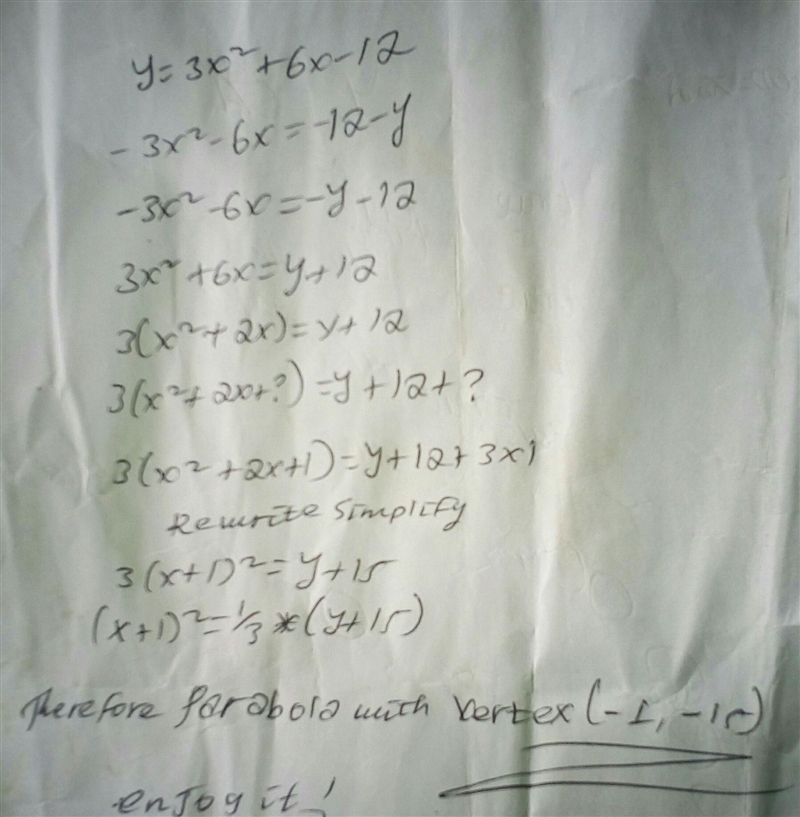 y=3x²+6x-12
-3x²-6x=-12-y
-3x²-6x=-y-12
3x²+6x=y+12
3(x²+2x)=y+12
3(x²+2x+?)=y+12+?
3(x²+2x+1)=y+12+3x1
Rewrite Simplify
3(x+1)²=y+15
(x+1)²=1/3*(y+15)
Therefore parabola with vertex (-1,-15)
enjoy it!